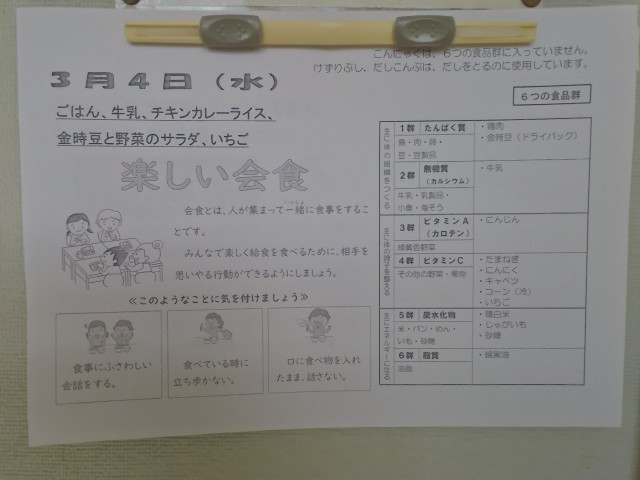 こんにゃくは、6つの食品群に入っていません。
けずりぶし、だしこんぶは、だしをとるのに使用しています。
3月4日(水)
ごはん、牛乳、チキンカレーライス、
金時豆と野菜のサラダ、いちご
楽しい会食
会食とは、人が集まって一緒に食事をするこ
とです。
みんなで楽しく給食を食べるために、相手を
思いやる行動ができるようにしましょう。
≪このようなことに気を付けましょう≫
食事にふさわしい
会話をする。
食べている時に
立ち歩かない。
口に食べ物を入れ
たまま、話さない。
6つの食品群
主に体の組織をつくる
1群 たんぱく質
魚・肉・卵・
豆・豆製品
・鶏肉
・金時豆(ドライパック)
2群 無機質
(カルシウム)
牛乳・乳製品・
小魚・海そう
・牛乳
主に体の調子を整える
3群 ビタミンA
(カロテン)
緑黄色野菜
・にんじん
4群 ビタミンC
その他の野菜・果物
・たまねぎ
・にんにく
・キャベツ
・コーン(冷)
・いちご
主にエネルギーになる
5群 炭水化物
米・パン・めん・
いも・砂糖
・精白米
・じゃがいも
・砂糖
6群 脂質
油脂
・綿実油